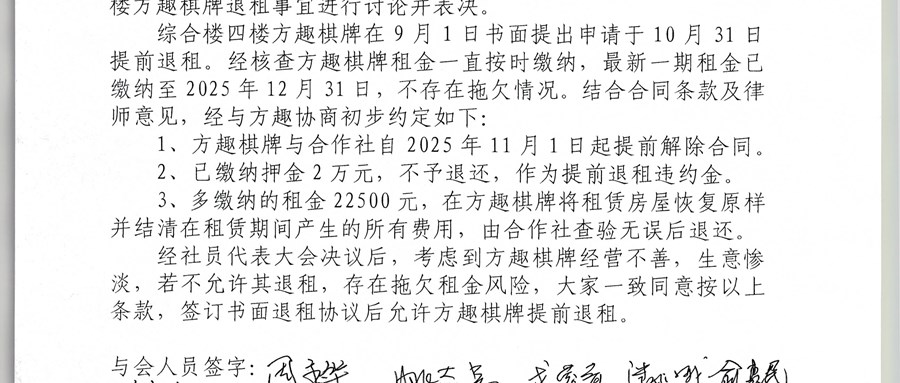 楼方趣棋牌退租事宜进行讨论并表决。
综合楼四楼方趣棋牌在9月1日书面提出申请于10月31日
提前退租。经核查方趣棋牌租金一直按时缴纳，最新一期租金已
缴纳至2025年12月31日，不存在拖欠情况。结合合同条款及律
师意见，经与方趣协商初步约定如下：
1、方趣棋牌与合作社自2025年11月1日起提前解除合同。
2、已缴纳押金2万元，不予退还，作为提前退租违约金。
3、多缴纳的租金22500元，在方趣棋牌将租赁房屋恢复原样
并结清在租赁期间产生的所有费用，由合作社查验无误后退还。
经社员代表大会决议后，考虑到方趣棋牌经营不善，生意惨
淡，若不允许其退租，存在拖欠租金风险，大家一致同意按以上
条款，签订书面退租协议后允许方趣棋牌提前退租。
与会人员签字：